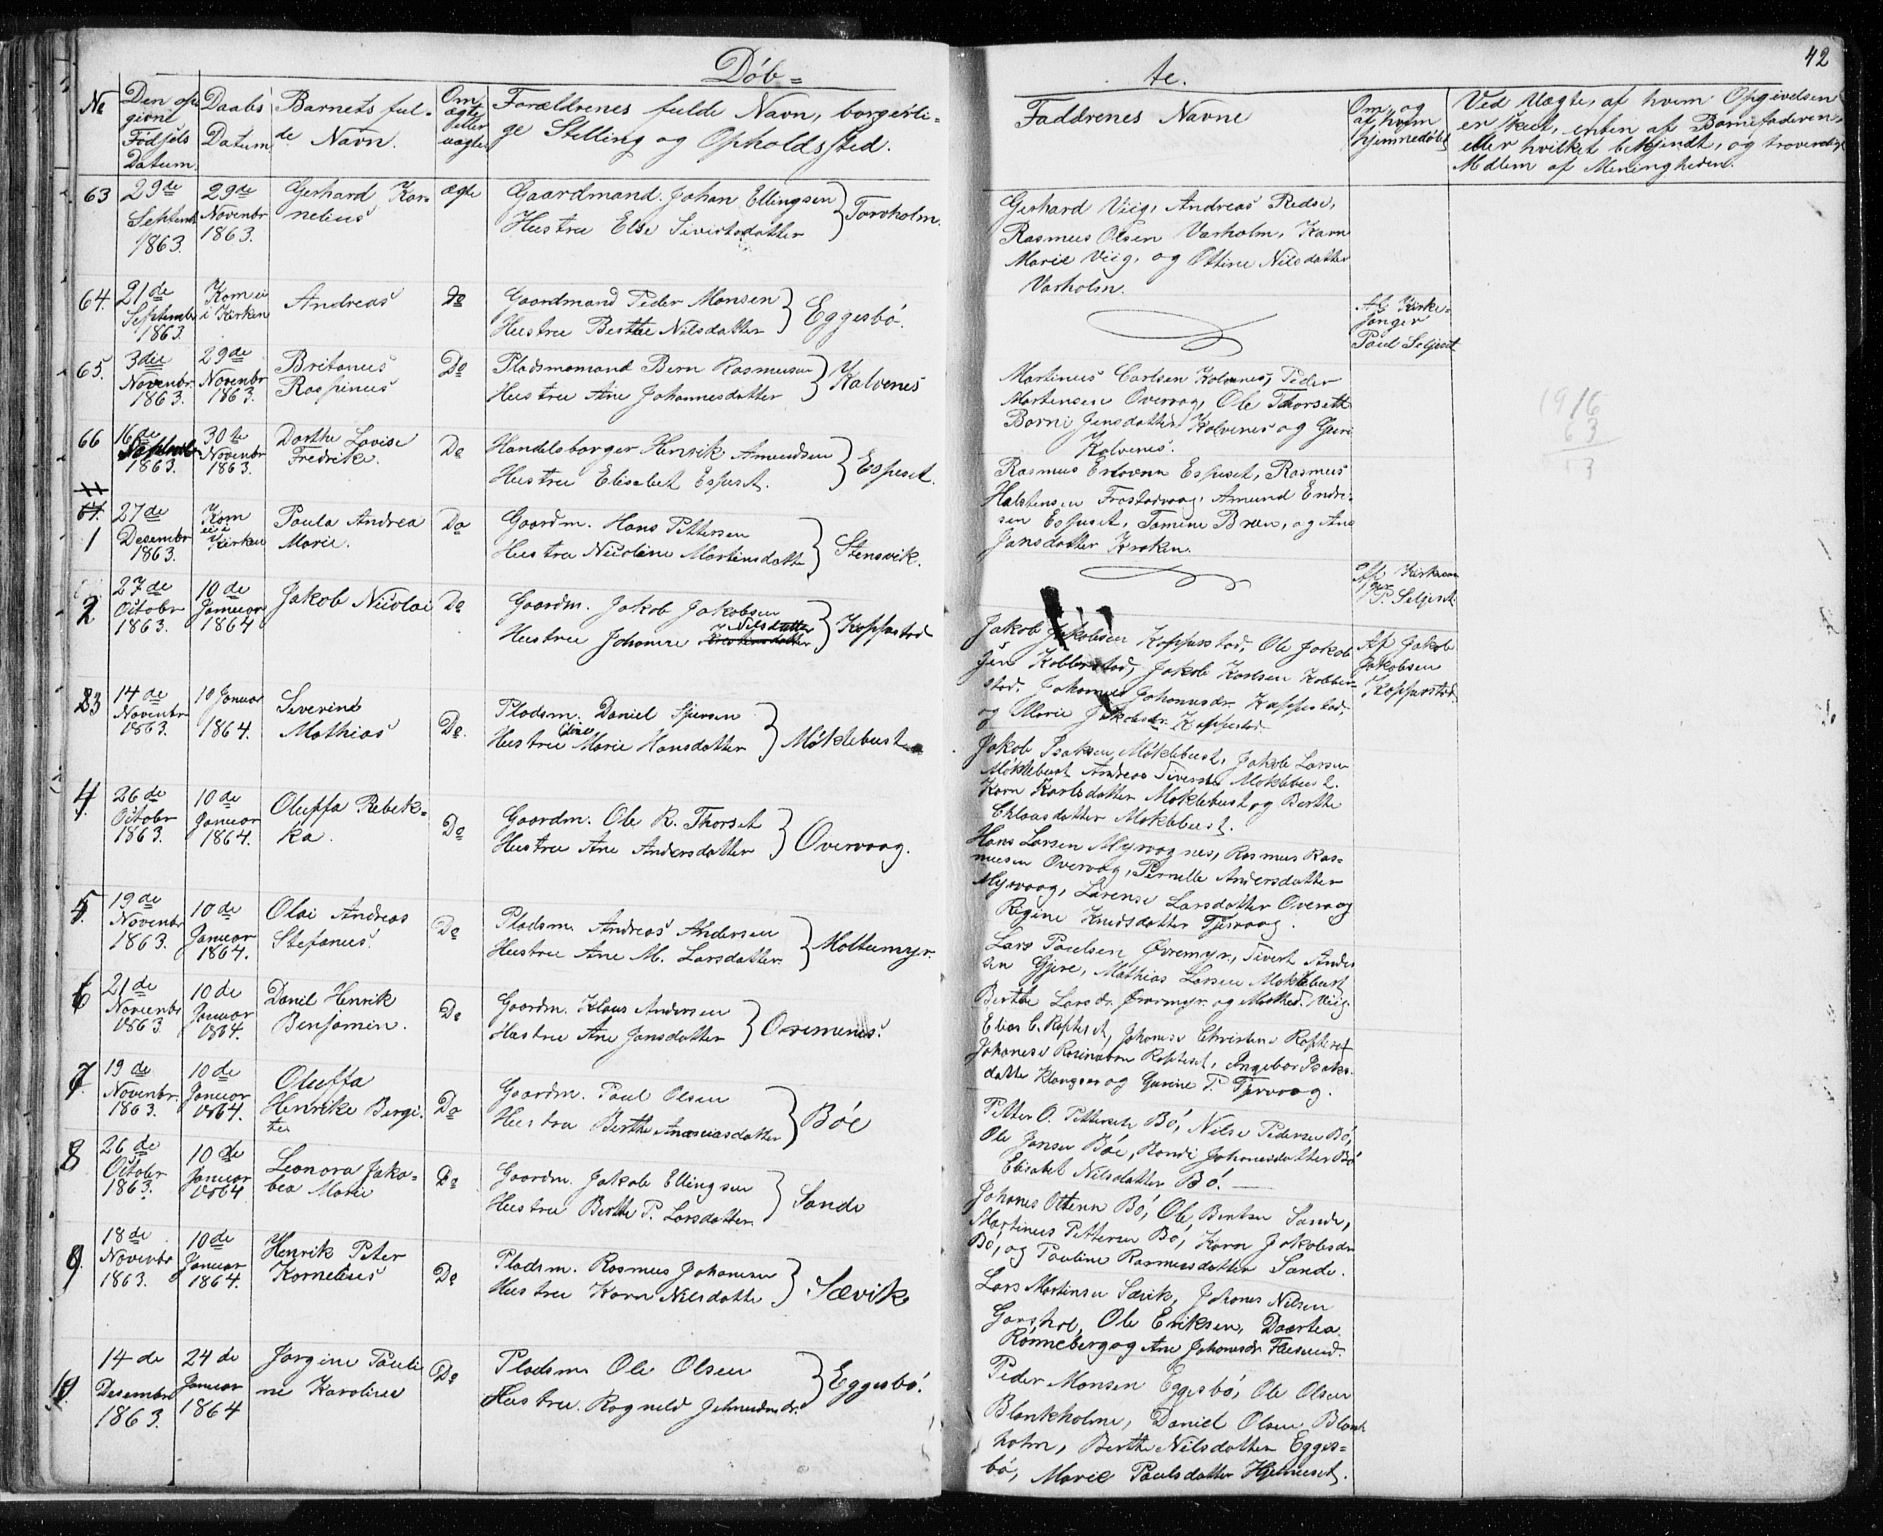 42
Döb=
te.
No
Den op
givne
Födsels
Datum.
Daabs
Datum.
Barnets ful-
de Navn.
Om
ægte
eller
uægte
Forældrenes fulde Navn, borgerli-
ge Stilling og Opholdssted.
Faddrenes Navne
Om, og
af hvem
hjemmedöbt
Ved Uægte, af hvem Opgivelsen
er skeet, enten af Barnefaderen,
eller hvilket bekjendt, og troværdigt
Medlem af Menigheden.
63
29de
Septembr
1863.
29de
Novenbr
1863.
Gerhard Kor
nelius
ægte
Gaardmand. Johan Ellingsen
Hustru Else Sivertsdatter
Torvholm.
Gerhard Viig, Andreas Redse,
Rasmus Olsen Varholm, Karn
Marie Viig, og Ottine Nilsdatter
Varholm.
64.
21de
Septembr
1863.
Kom ei
i Kirken
Andreas
Do
Gaardmand Peder Monsen
Hustru Berthe Nilsdatter
Eggesbö.
Af Kirke-
sanger
Paul Seljeset
65.
3die
Novenbr
1863.
29de
Novenbr
1863.
Britanus
Raspinus
Do
Pladsmomand Bern Rasmusen
Hustru Ane Johannesdatter
Kalvenes
Martinus Carlsen Kolvenes, Peder
Martensen Overvaag, Ole Thorseth
Borni Jensdatter Kolvenes og Guri
Kolvenes.
1916
63
53
66
16de
1863.
30te
Novenbr
1863.
Dorthe Lovise
Fredrik.
Do
Handelsborger Henrik Amundsen
Hustru Elisabet Espeset.
Espeset.
Rasmus Espeset, Rasmus
Halstensen Frostadvaag, Amund Endre-
sen Espeset, Tomine Bruun, og Ane
Jansdatter Kroken.
67.
1
27de
Desembr
1863.
Kom
ei i
Kirken
Paula Andrea
Marie.
Do
Gaardm. Hans Pettersen
Hustru Nicoline Martinsdatte
Stensvik.
Af Kirkesan
ger
P. Seljeset.
2
27de
Octobr
1863.
10de
Januar
1864
Jakob Nicolai
Do
Gaardm. Jakob Jakobsen
Nilsdatter
Hustru Johanne
Koppestad
Jakob Jakobsen Kopperstad, Ole Jakob
sen Kobberstad, Jakob Karlsen Kobber-
stad, Johannes Johannsdr. Koppestad,
og Marie Jakobsdr. Koppestad.
Af Jakob
Jakobsen
Kopperstad.
3
14de
Novenbr
1863.
10 Januar
1864.
Severine
Mathias
Do.
Pladsm. Daniel Spersen
Hustru Marie Hansdatter
Möklebust
Jakob Isaksen Möklebust, Jakob Larsen
Möklebust Andreas Siversen Moklebust.
Karn Karlsdatter Moklebust og Berthe
Chlausdatter Moklebust.
4.
26de
Octobr
1863.
10de
Januar
1864.
Oluffa Rebek-
ka.
Do
Gaardm. Ole R. Thorset
Hustru Ane Andersdatter
Overvaag.
Hans Larsen Myrvognes, Rasmus Ras-
musen Overvaag, Pernille Andersdatter
Myrvaag, Larense Larsdatter Overvaag
Regine Knudsdatter Tjervaag.
5.
19de
Novenbr
1863.
10de
Januar
1864.
Olai Andreas
Stefanus.
Do
Pladsm. Andreas Andersen
Hustru Ane M. Larsdatter
Moltumyr.
Lars Paulsen Övremyr, Sivert Ander
sen Gjere, Mathias Larsen Moklebust
Berthe Larsdr. Övremyr og Mathed. Viig
6
21de
Novenbr
1863
10de
Januar
1864.
Danil Henrik
Benjamin.
Do
Gaardm. Klaus Andersen
Hustru Ane Jansdatter
Osremenes.
Elias C. Ropteset, Johanes Christens Ropteset
Johanese Rasmusen Ropteset, Ingebor Isaks-
datter Klungsas og Gurine P. Tjervaag.
7.
19de
Novenbr.
1863.
10de
Januar
1864.
Oluffa
Henrike Bergi-
tte
Do
Gaardm. Paul Olsen
Hustru Berthe Ananiasdatter
Böe
Petter O. Pettersen Bö, Nilse Pedersen Bö,
Ole Jansen Böe, Randi Johanesdatter Bö
Elisabet Nilsdatter Bö.
8
26de
Octobr
1863.
10de
Januar
1864
Leonora Jako-
bea Marie
Do
Gaardm. Jakob Ellingsen
Hustru Berthe P. Larsdatter
Sande
Johanes Ottesen Bö, Ole Bentsen Sande,
Martinus Pettersen Bö, Karn Jakobsdr
Bö, og Pauline Rasmusdatter Sande.
9.
18de
Novenbr
1863.
10de
Januar
1864.
Henrik Peter
Kornelius
Do
Pladsm. Rasmus Johansen
Hustru Karn Nilsdatte
Sævik
Lars Martinsen Sævik, Johanes Nilsen
Garshol, Ole Eriksen, Daartea
Rönneberg og Ane Johanesdr. Flusund.
10.
14de
Desembr
1863.
24de
Januar
1864
Jorgine Pauli
ne Karoline
Do
Pladsm. Ole Olsen
Hustru. Rogneld Johnesdr.
Eggesbö.
Peder Monsen Eggesbö, Ole Olsen
Blankholm, Daniel Olsen Blank
holm, Berthe Nilsdatter Egges-
bö, Marie Paulsdatter Hjelmeset.